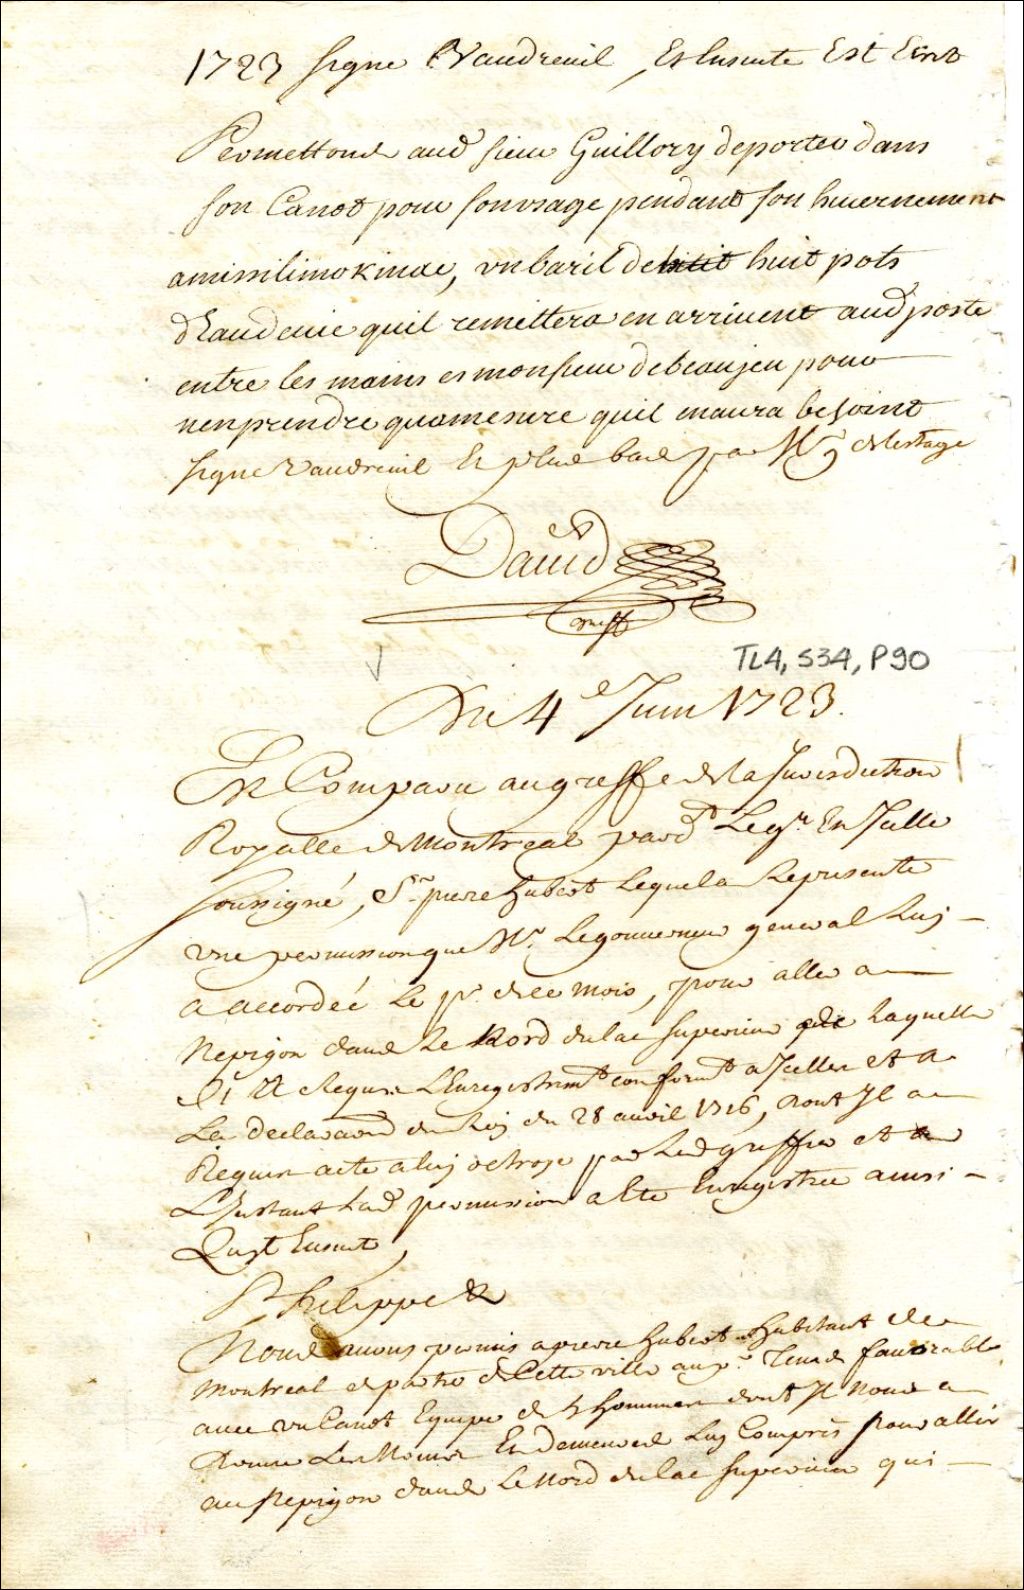 1723 signe Vaudreuil, Et Ensuite Est Ecrit
Permettons aud sieur Guillory deporter dans
son Canot pour sonusage pendant son hiuernement
amissilimokinac, vnbaril de huit pots
d'Eaudeuie quil remettera en arriuent aud poste
entre les mains monsieur debeaujeu pour
nenprendre quamesure quil enaura besoint
signe Vaudreuil Et plus bas par Mgr delestage
Dauid
greff
TL4, S34, P90
Du 4e Juin 1723.
Est Comparu augreffe dela Jurisdiction
Royalle de Montreal pard Le gr En Jcelle
soussigné, Sr. piere hubert Lequel a Represente
vne permission que Mr. Legouuerneur general Luy
a accordéé Le pr. de ce mois, pour aller a
Nepigon dans Le Nord du lac superieur Laquelle
Il Requis LEnregistremt conformt a Jcelle et a
La declaraon du Roy du 28 auril 1716, dont Jl a
Requis acte a luy octroye par Led greffier et
LJnstant Lad permission a Ete Enregistree ainsi
Quil Ensuit,
P. Philippe &
Nous auons permis a piere hubert habitant de
Montreal de partir de Cette ville au pr. Tems fauorable
auec vn Canot Equipé de hommes dont Jl nous a
donne Les Noms Et demeures Luy Compris pour aller
au Nepigon dans Le Nord du lac superieur qui